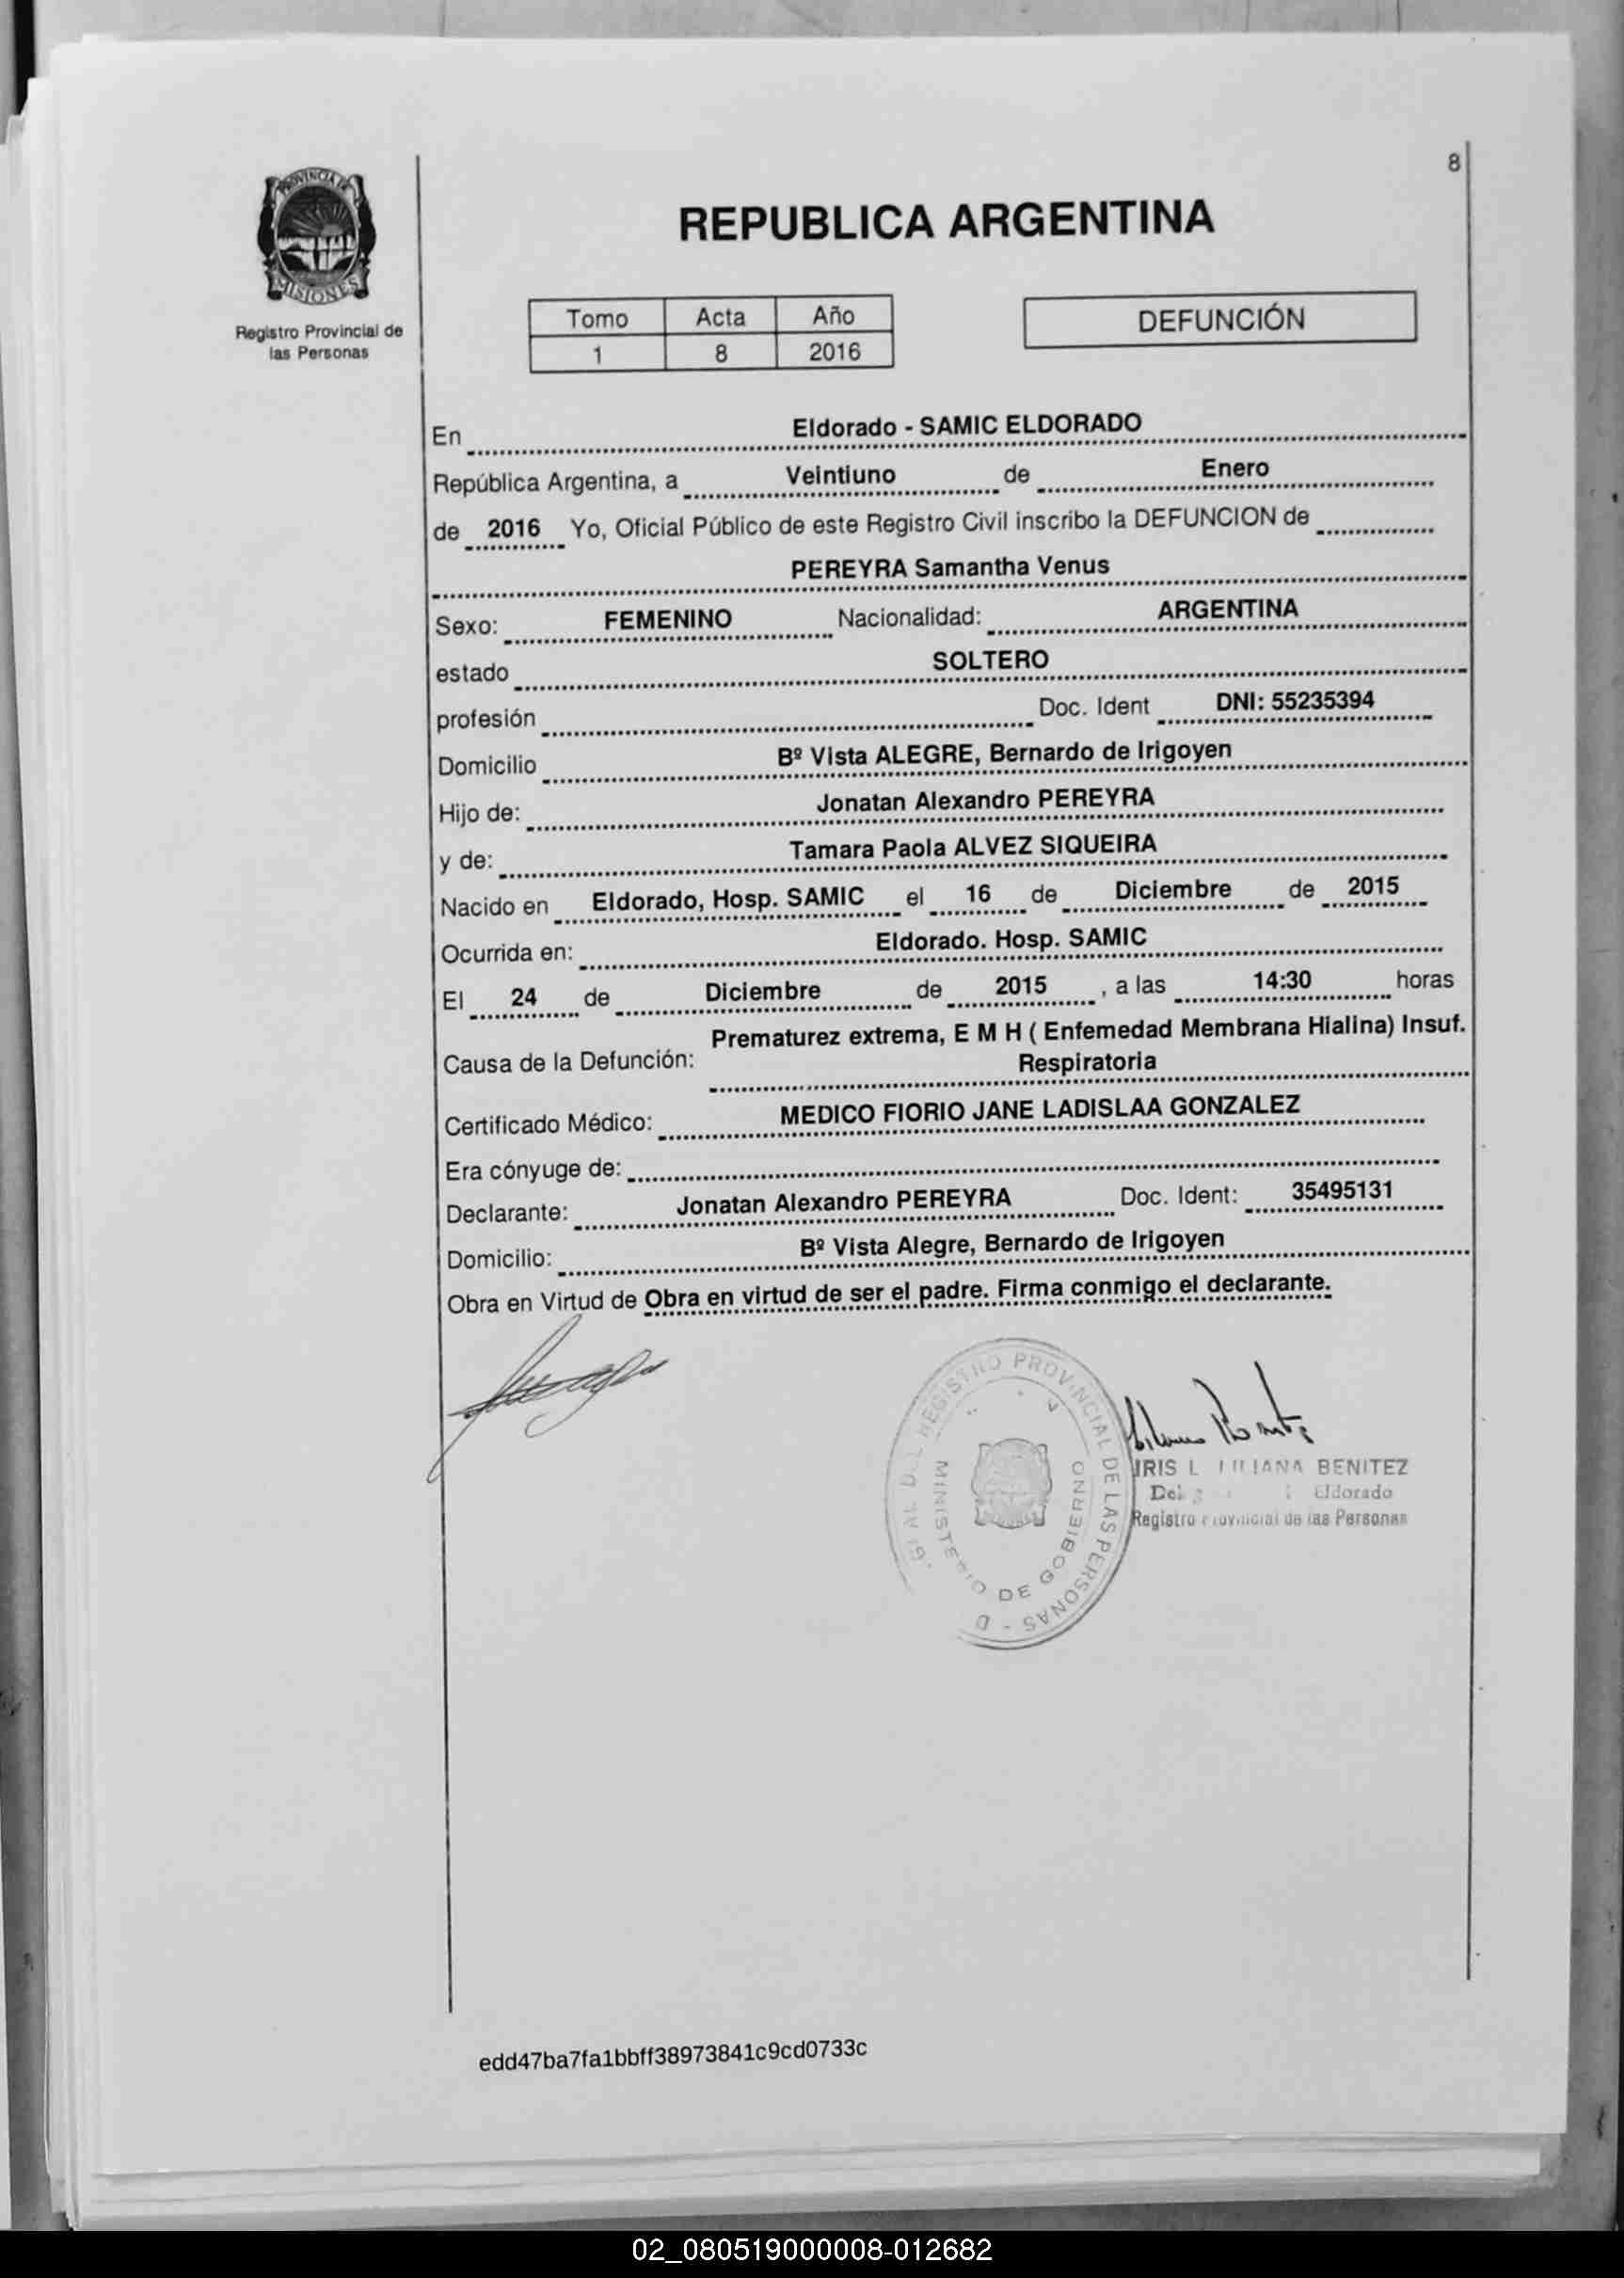 8
PROVINCIA DE
MISIONES
Registro Provincial de
las Personas
REPUBLICA ARGENTINA
Tomo Acta Año
1 8 2016
DEFUNCIÓN
En Eldorado - SAMIC ELDORADO
República Argentina, a Veintiuno de Enero
de 2016 Yo, Oficial Público de este Registro Civil inscribo la DEFUNCION de
PEREYRA Samantha Venus
Sexo: FEMENINO Nacionalidad: ARGENTINA
estado SOLTERO
profesión Doc. Ident DNI: 55235394
Domicilio Bº Vista ALEGRE, Bernardo de Irigoyen
Hijo de: Jonatan Alexandro PEREYRA
y de: Tamara Paola ALVEZ SIQUEIRA
Nacido en Eldorado, Hosp. SAMIC el 16 de Diciembre de 2015
Ocurrida en: Eldorado. Hosp. SAMIC
El 24 de Diciembre de 2015 , a las 14:30 horas
Causa de la Defunción: Prematurez extrema, E M H ( Enfemedad Membrana Hialina) Insuf.
Respiratoria
Certificado Médico: MEDICO FIORIO JANE LADISLAA GONZALEZ
Era cónyuge de:
Declarante: Jonatan Alexandro PEREYRA Doc. Ident: 35495131
Domicilio: Bº Vista Alegre, Bernardo de Irigoyen
Obra en Virtud de Obra en virtud de ser el padre. Firma conmigo el declarante.
REGISTRO PROVINCIAL DE LAS PERSONAS
MINISTERIO DE GOBIERNO
IRIS L LILIANA BENITEZ
Eldorado
Registro Provincial de las Personas
edd47ba7fa1bbff38973841c9cd0733c
02_080519000008-012682